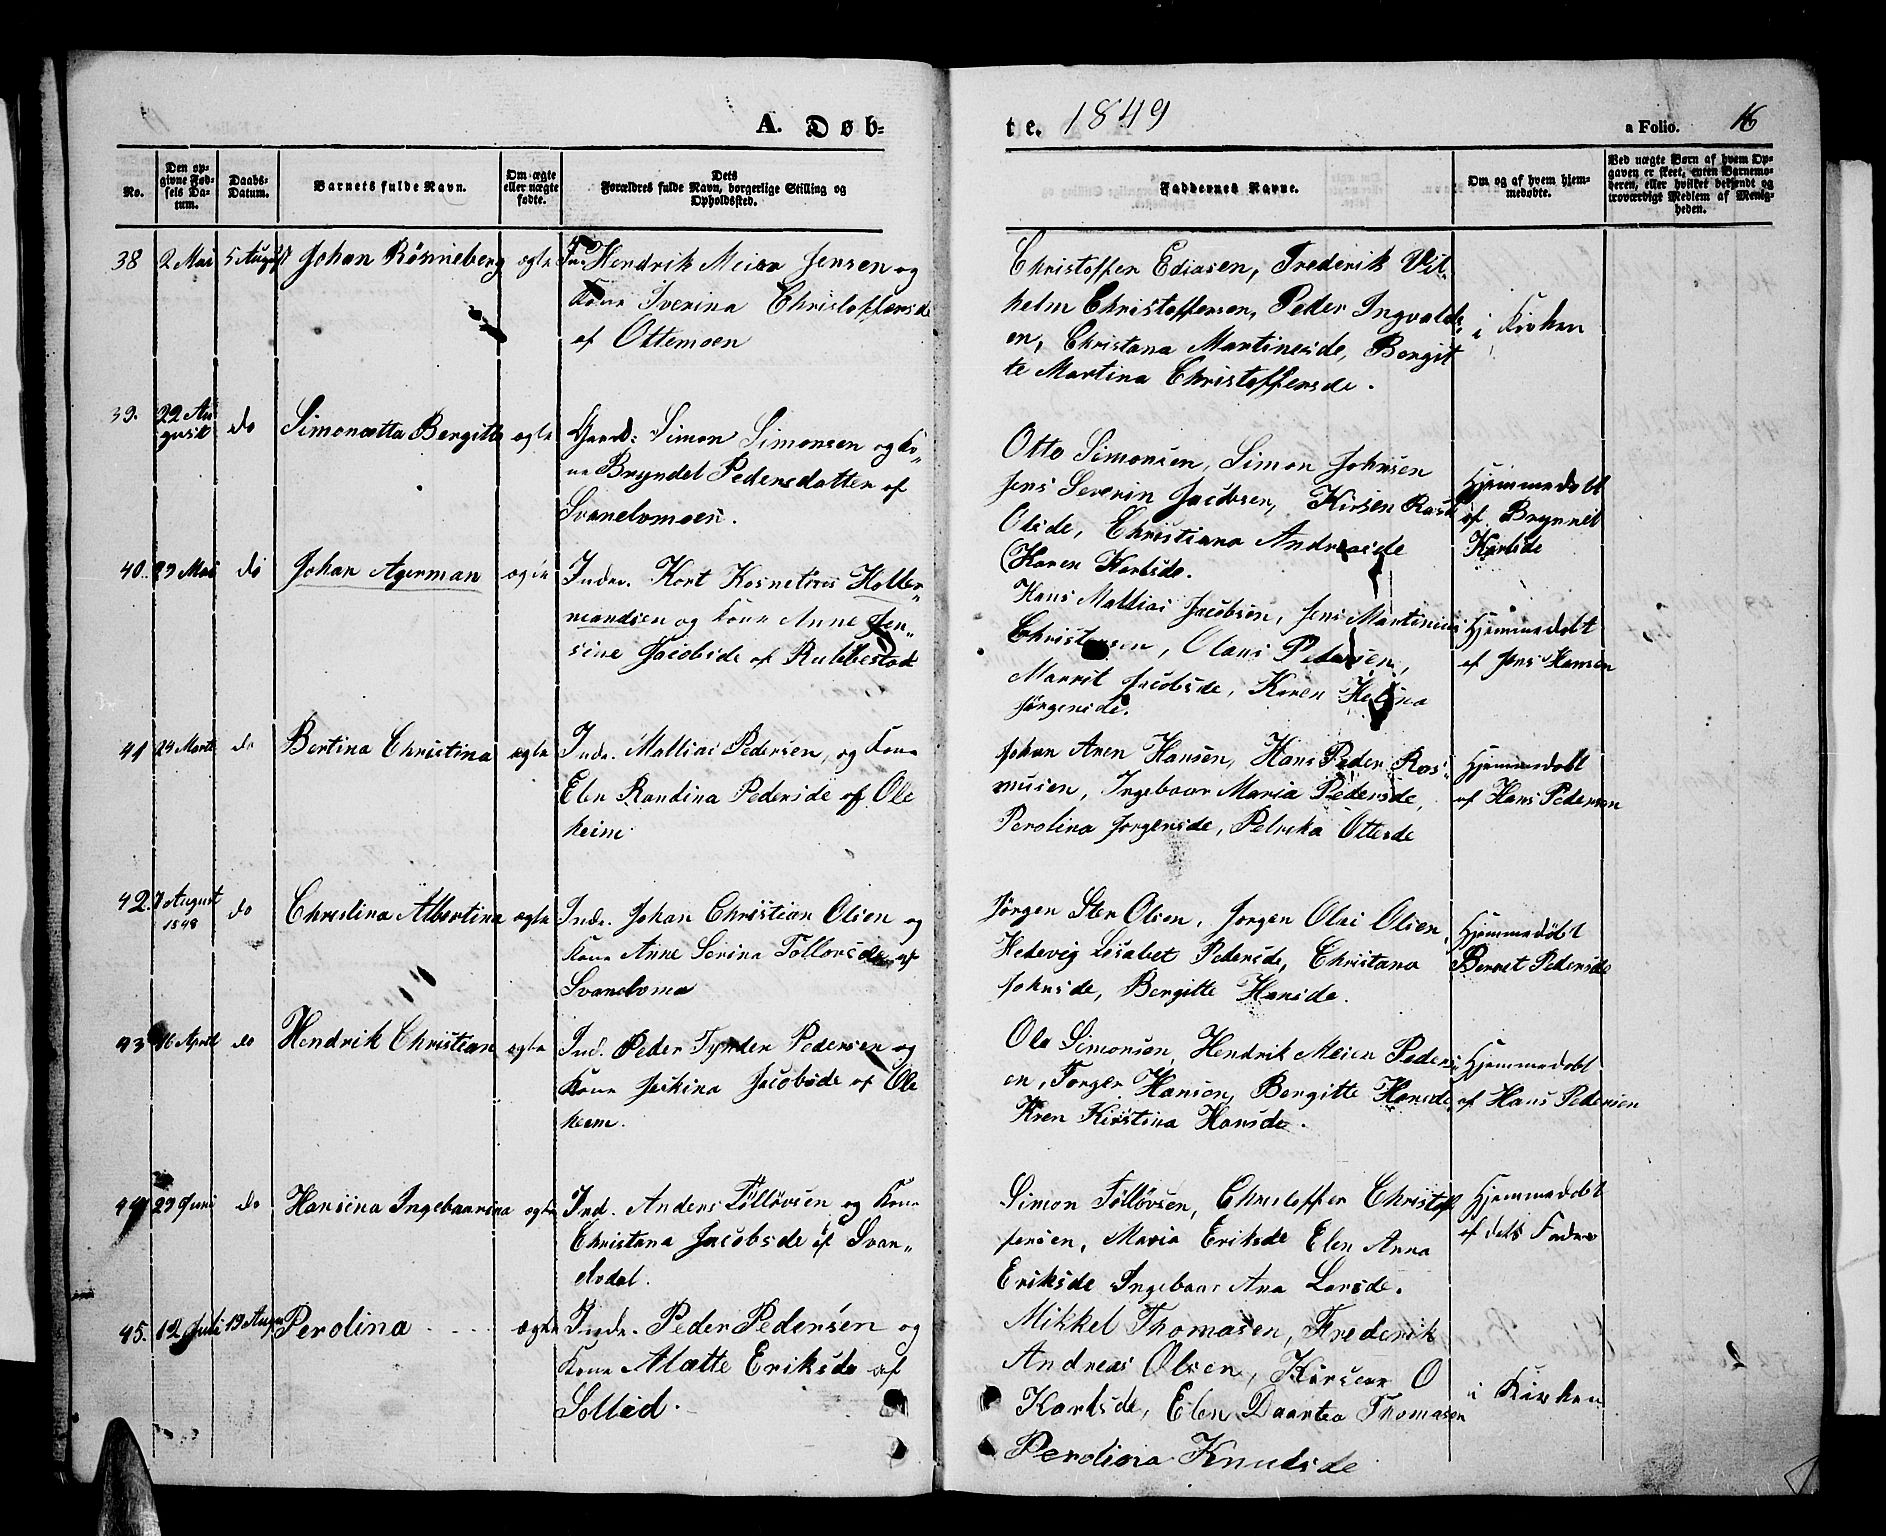 A. Døb-
te. 1849
a Folio. 16
No.
Den op-
givne Fød-
sels Da-
tum.
Daabs-
Datum.
Barnets fulde Navn.
Om ægte
eller uægte
fødte.
Dets
Forældres fulde Navn, borgerlige Stilling og
Opholdssted.
Faddernes Navne.
Om og af hvem hjem-
medøbte.
Ved uægte Børn af hvem Op-
gaven er skeet, enten Barnemo-
deren, eller hvilket bekjendt og
troværdigt Medlem af Menig-
heden.
38 2 Mai 5 August Johan Rösnneberg ægte Ind. Hendrik Meier Jensen og
Kone Iverina Christoffersde
af Ottemoen
Christoffer Ediasen, Frederik Vil-
helm Christoffersen, Peder Ingvalds-
en, Christana Martinesde, Bergit
te Martina Christoffersde.
i Kirken
39. 22 Au
gust do Simonætta Bergitte ægte Gaard: Simon Simonsen og Ko„
ne Bryndel Pedersdatter af
Svanelvmoen.
Otto Simonsen, Simon Johnsen
Jens Severin Jacobsen, Kirsen
Olsde, Christiana Andreasde
Karen Karlsde.
Hjemmedøbt
af Brynnel
Karlsde
40. 29 Mai do Johan Agerman ægte Indr. Kort Kosnetöres Holter„
mandsen og Kone Anne Jen„
sine Jacobsde af Rubbestad
Hans Mathias Jacobsen, Jens Martinus
Christensen, Olaus Pedersen,
Marrit Jacobsde, Karen Helina
Jörgensde.
Hjemmedøbt
af Jens Hansen
41 24 Marts do Bertina Christina ægte Indr. Mathias Pedersen, og Kone
Elen Randina Pedersde af Ole
heim
Johan Aren Hansen, Hans Peder Ras„
musen, Ingebaar Maria Pedersde,
Perolina Jørgensde, Petrika Ottesde
Hjemmedøbt
af Hans Pedersen
42. 7 August
1848 do Christina Albertina ægte Indr. Johan Christian Olsen og
Kone Anne Serina Tollorsde af
Svanelvmo
Jørgen Ster Olsen, Jorgen Olai Olsen,
Hedevig Lisabet Pedersde, Christana
Johnsde, Bergitte Hansde.
Hjemmedøbt
Berret Pedersde
43 16 April do Hendrik Christian ægte Ind. Peder Tynder Pedersen og
Kone Jeskina Jacobsde af Ole
heim.
Ole Simonsen, Hendrik Meier Peders
en, Torger Hansen, Bergitte Hansde,
Kren Kirstina Hansde.
Hjemmedøbt
af Hans Pedersen
44 29 Juni do Hansina Ingebaarina ægte Ind. Anders Töllövsen og Kone
Christana Jacobsde af Svan„
elvdal.
Simon Töllövsen, Christoffer Christof
fersen, Maria Eriksde Elen Anna
Eriksde Ingebaar Ana Larsde.
Hjemmedøbt
af dets Fader
45. 12 Juli 19 Augu Perolina ægte Indr. Peder Pedersen og
Kone Alætte Eriksde af
Sollied.
Mikkel Thomasen, Frederik
Andreas Olsen, Kirsten O
Karlsde, Elen Daartea Thomasen
Perolina Knudsde
i Kirken